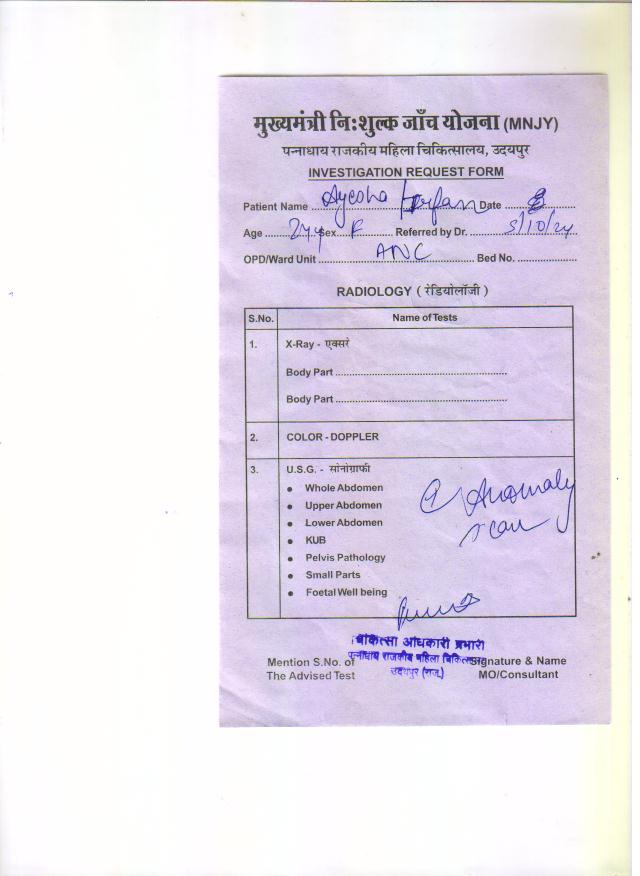 मुख्यमंत्री निःशुल्क जाँच योजना (MNJY)
पन्नाधाय राजकीय महिला चिकित्सालय, उदयपुर
INVESTIGATION REQUEST FORM
Patient Name Ayesha Irfan Date
Age 24y Sex F Referred by Dr. 5/10/24
OPD/Ward Unit ANC Bed No.
RADIOLOGY ( रेडियोलॉजी )
S.No. Name of Tests
1. X-Ray - एक्सरे
Body Part
Body Part
2. COLOR - DOPPLER
3. U.S.G. - सोनोग्राफी
• Whole Abdomen
• Upper Abdomen
Anomaly
• Lower Abdomen
scan
• KUB
• Pelvis Pathology
• Small Parts
• Foetal Well being
चिकित्सा अधिकारी प्रभारी
पन्नाधाय राजकीय महिला चिकित्सालय
उदयपुर (राज.)
Mention S.No. of Signature & Name
The Advised Test MO/Consultant